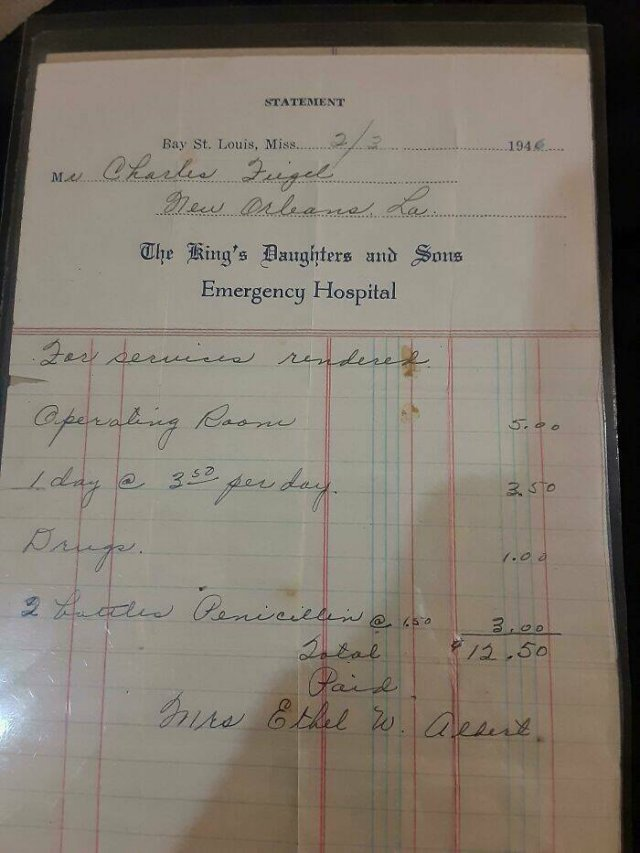 STATEMENT
Bay St. Louis, Miss. 2/3 1946
Mr Charles Feigel
New Orleans, La.
The King's Daughters and Sons
Emergency Hospital
For services rendered.
Operating Room 5.00
1 day @ 3 50 per day. 3.50
Drugs. 1.00
2 bottles Penicillin @ 1.50 3.00
Total $12.50
Paid
Mrs Ethel W. Albert.